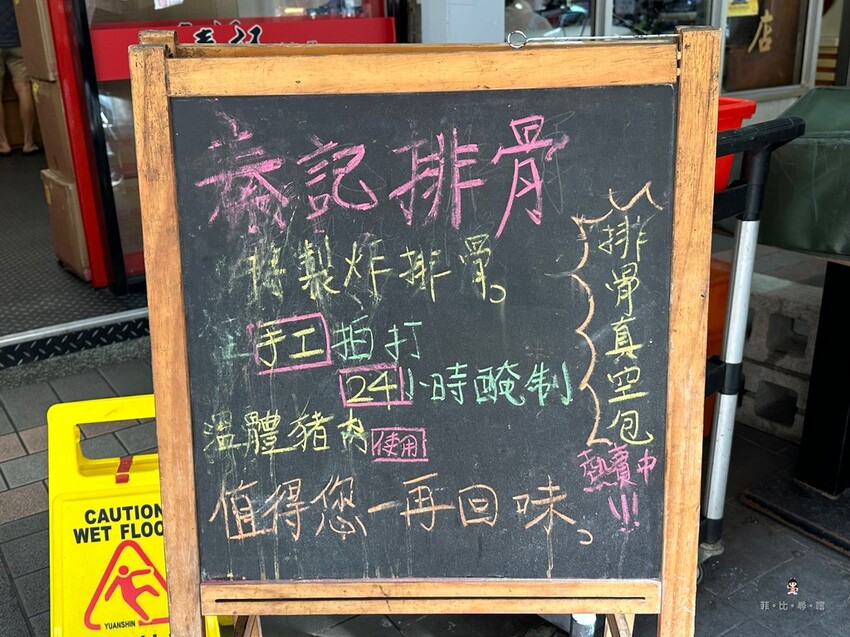 記排骨
特製炸排骨。
手工拍打
24小時醃制
溫體豬肉使用
值得您一再回味。
排骨真空包
熱賣中!!!
店
CAUTION
WET FLOO
YUANSHIN
菲•比•尋•常